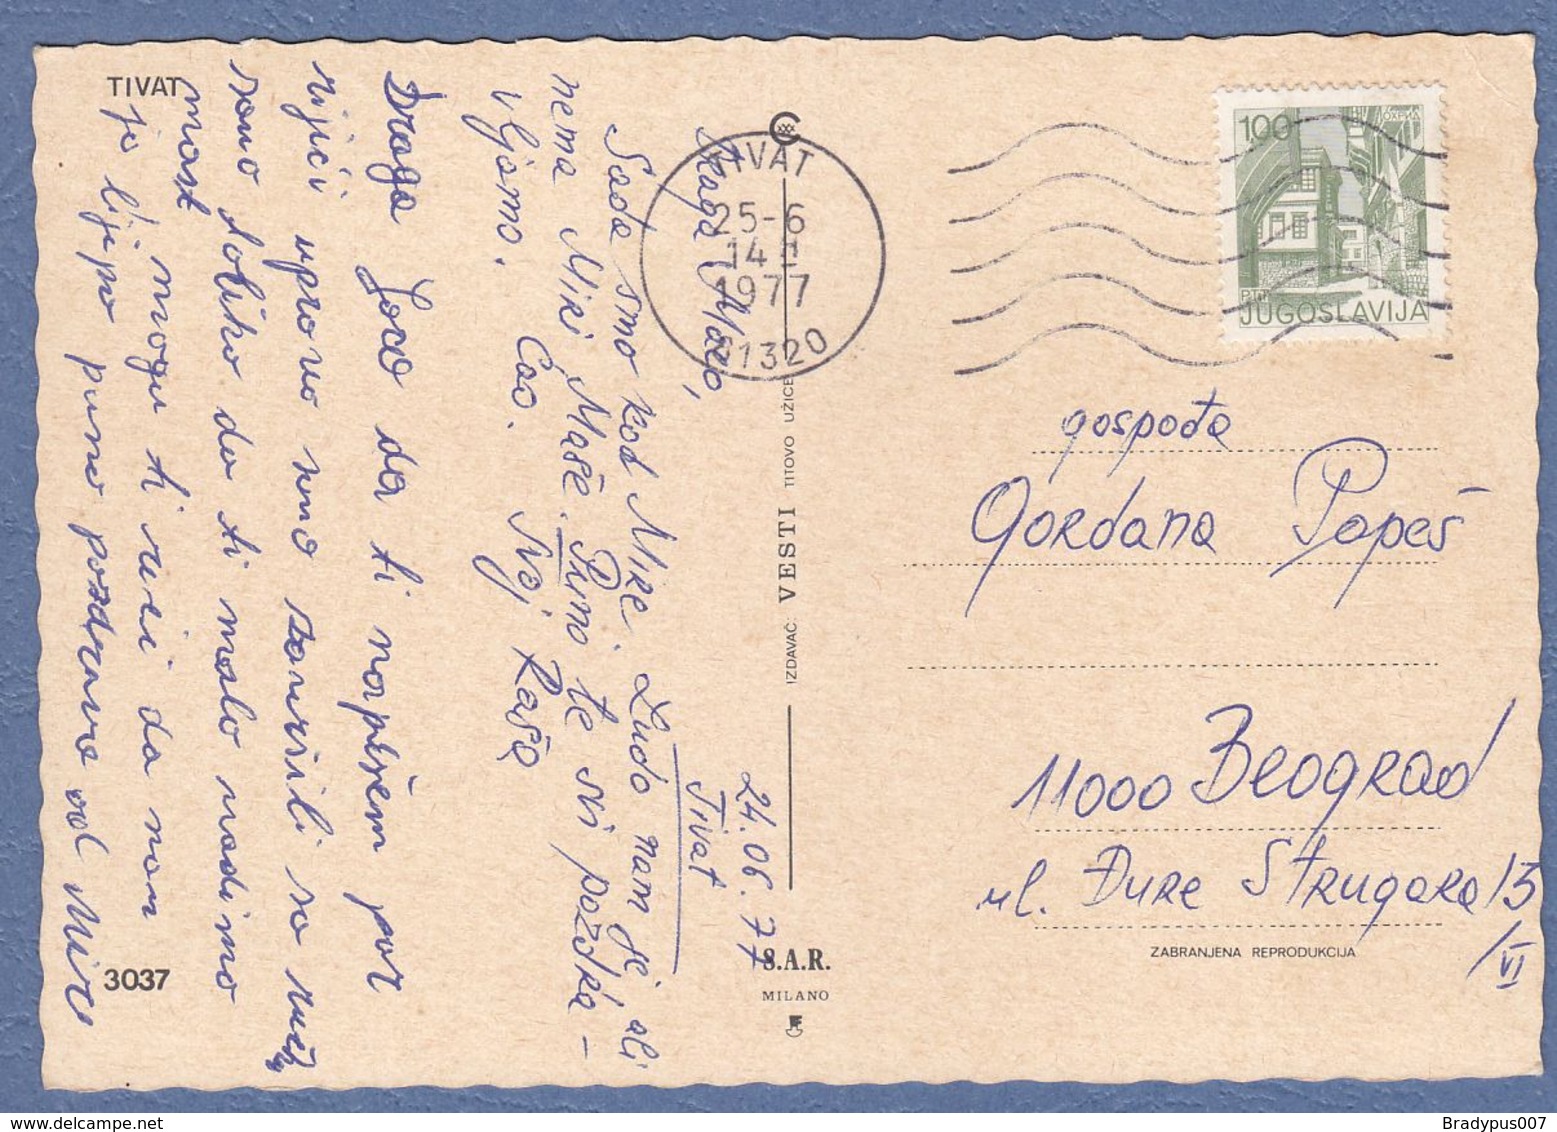 TIVAT
24.06.77
Tivat
Draga Maćo,
Sada smo kod Mire. Ludo nam je ali
nema Miki Mače. Puno te svi pozdra-
vljamo. Cao. Tvoj Raša
Draga Joco da ti napišem par
riječi upravo smo završili sa ruč
samo toliko da ti malo nadimo
mast
ja mogu ti reći da nam
je lijepo puno pozdrava od Mire
3037
TIVAT
25-6
14
1977
81320
IZDAVAČ VESTI TITOVO UŽICE
S.A.R.
MILANO
100
ОХРИД
PTT
JUGOSLAVIJA
gospođa
Gordana Popeš
11000 Beograd
ul. Đure Strugara 13
/VI
ZABRANJENA REPRODUKCIJA
Bradypus007